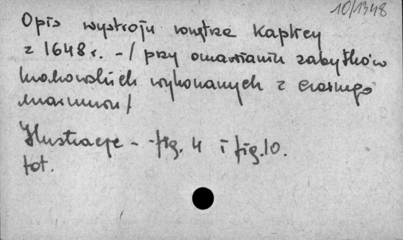 10/1348
Opis wystroju wnętrza Kaplicy
z 1648 r. - / przy omawianiu zabytków
krakowskich wykonanych z czarnego
marmuru /
Ilustracje - fig. 4 i fig. 10.
fot.